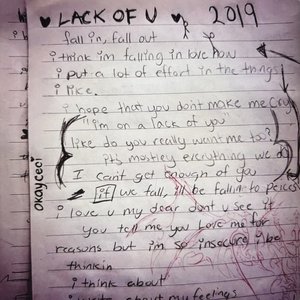 ♥ LACK OF U ♥ 2019
fall in, fall out
i think im falling in love now
i put a lot of effort in the things
i like.
i hope that you dont make me cry
"im on a lack of you"
like do you really want me to?
it's mostley everything we do
I cant get enough of you
if we fall, i'll be fallin to peices
i love u my dear dont u see it
You tell me you Love me for
reasons but im so insecure i be
thinkin
i think about
about my feelings
OKayceci